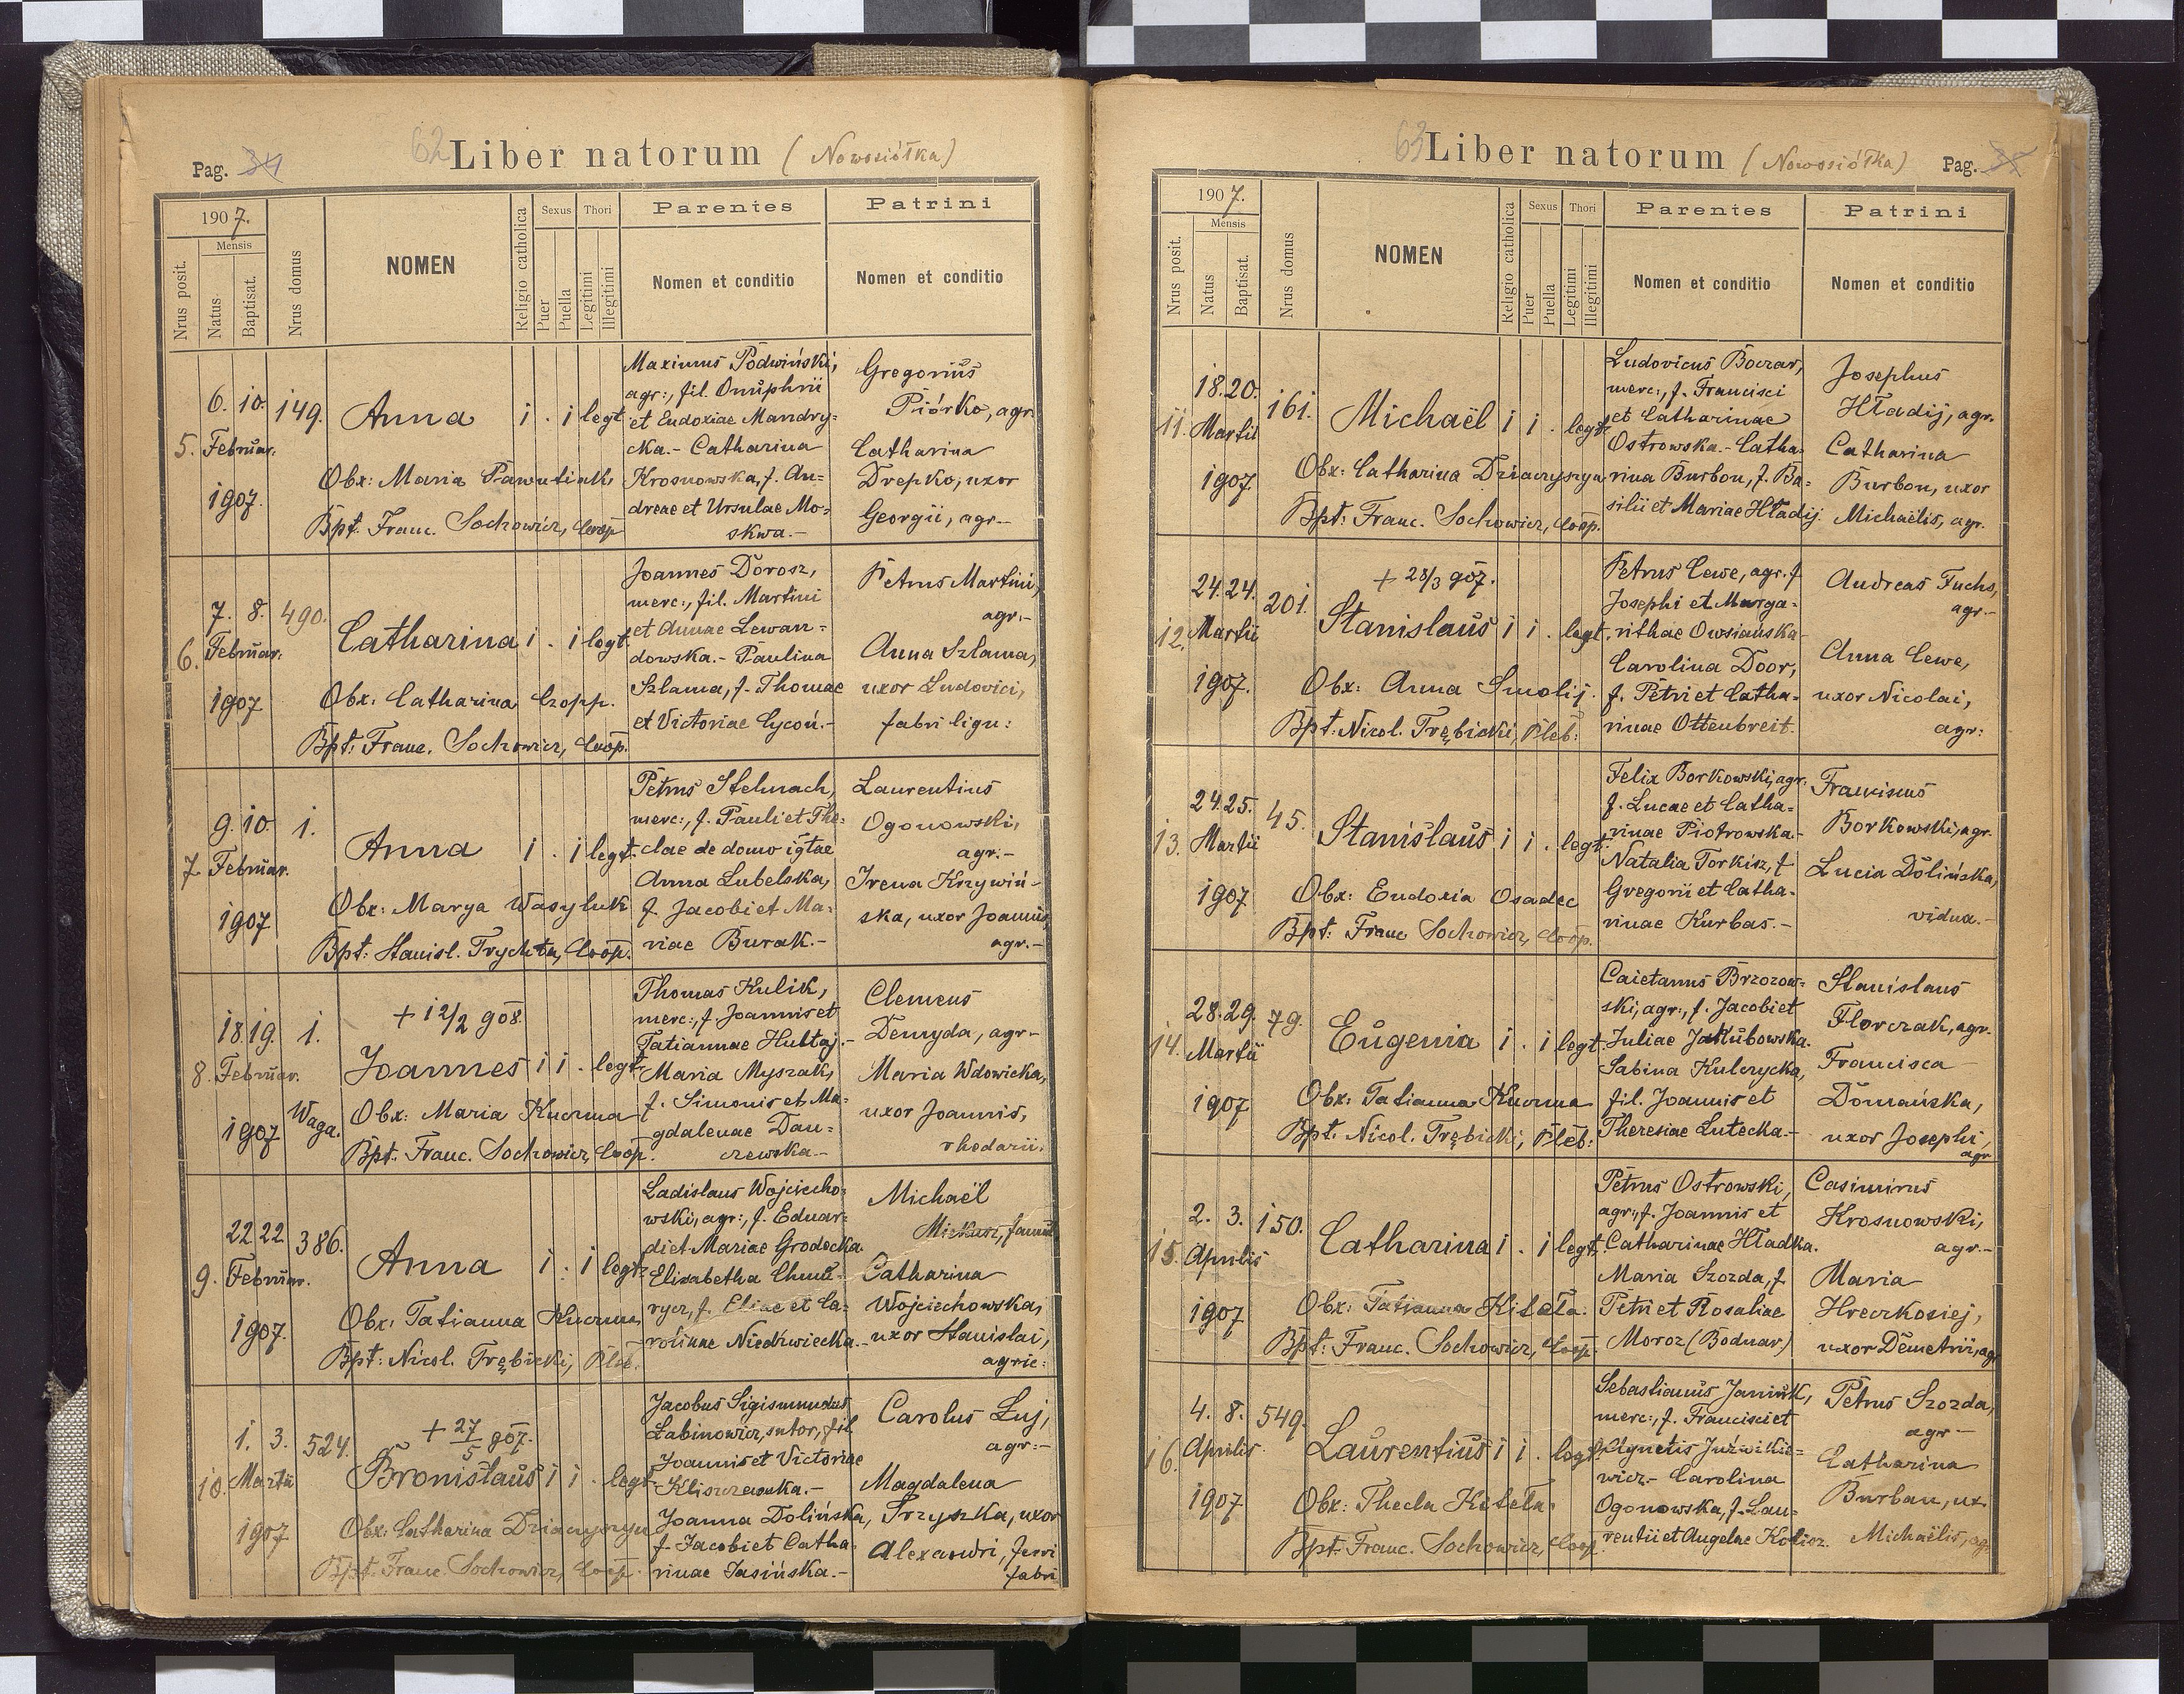 Pag. 34
62 Liber natorum (Nowosiółka)
1907.
Nrus posit.
Mensis
Natus
Baptisat.
Nrus domus
NOMEN
Religio catholica
Sexus
Puer
Puella
Thori
Legitimi
Illegitimi
Parentes
Nomen et conditio
Patrini
Nomen et conditio
5.
6. 10.
Februar.
1907.
149.
Anna i . i legt.
Obx: Maria Pawutiak
Bpt. Franc. Sochowicz, Coop.
Maximus Podwiński,
agr:, fil. Onuphrii
et Eudoxiae Mandry-
cka.- Catharina
Krosnowska, f. An-
dreae et Ursulae Mo-
skwa.-
Gregorius
Piórko, agr.
Catharina
Drepko, uxor
Georgii, agr.-
6.
7. 8.
Februar.
1907
490.
Catharina i . i legt.
Obx. Catharina Czopp.
Bpt: Franc. Sochowicz, Coop.
Joannes Dorosz,
merc:, fil. Martini
et Annae Lewan-
dowska.- Paulina
Szlama, f. Thomae
et Victoriae Cycoń.-
Petrus Martini,
agr.-
Anna Szlama,
uxor Ludovici,
fabri lign:
7.
9. 10.
Februar.
1907
1.
Anna i . i legt.
Obx: Marya Wasyluk
Bpt: Stanisl. Trychta, Coop.
Petrus Stelmach,
merc:, f. Pauli et The-
clae de domo igtae
Anna Lubelska,
f. Jacobi et Ma-
riae Burak.-
Laurentius
Ogonowski,
agr.-
Irena Krzywiń-
ska, uxor Joannis,
agr.-
8.
18. 19.
Februar.
1907
1.
Waga.
+ 12/2 908.
Joannes i i . legt.
Obx: Maria Kuczma
Bpt: Franc. Sochowicz, Coop.
Thomas Kulik,
merc:, f. Joannis et
Tatiannae Hultaj.-
Maria Myszak,
f. Simonis et Ma-
gdalenae Dan-
czewska.-
Clemens
Demyda, agr.-
Maria Wdowicka,
uxor Joannis,
rhedarii.
9.
22 22
Februar.
1907.
386.
Anna i . i legt.
Obx: Tatianna Kuczma
Bpt: Nicol. Trębicki, Pleb.
Ladislaus Wojciecho-
wski, agr:, f. Eduar-
di et Mariae Grodecka.
Elisabetha Chmie-
rycz, f. Eliae et Ca-
rolinae Niedzwiecka.-
Michaël
Catharina
Wojciechowska,
uxor Stanislai,
agric:
10.
1. 3.
Martii
1907
524.
+ 27/5 907.
Bronislaus i i . legt.
Obx: Catharina Dziaczyszyn
Bpt. Franc. Sochowicz, Coop.
Jacobus Sigismundus
Łabinowicz, sutor, fil.
Joannis et Victoriae
Kliszczewska.-
Joanna Dolińska,
f. Jacobi et Catha-
rinae Jasińska.-
Carolus Łuj,
agr.-
Magdalena
Trzyszka, uxor
Alexandri, ferri
fabri
63 Liber natorum (Nowosiółka)
Pag. 35
1907.
Nrus posit.
Mensis
Natus
Baptisat.
Nrus domus
NOMEN
Religio catholica
Sexus
Puer
Puella
Thori
Legitimi
Illegitimi
Parentes
Nomen et conditio
Patrini
Nomen et conditio
11.
18. 20.
Martii
1907.
161.
Michaël i i . legt.
Obx: Catharina Dziaczyszyn
Bpt: Franc. Sochowicz, Coop.
Ludovicus Boczar,
merc:, f. Francisci
et Catharinae
Ostrowska.- Catha-
rina Burbon, f. Ba-
silii et Mariae Hładij.
Josephus
Hładij, agr.
Catharina
Burbon, uxor
Michaëlis, agr.
12.
24. 24.
Martii
1907.
201.
+ 28/3 907.
Stanislaus i i . legt.
Obx: Anna Smolij.
Bpt: Nicol. Trębicki, Pleb:
Petrus Cewe, agr. f.
Josephi et Marga-
rithae Owsianska-
Carolina Door,
f. Petri et Catha-
rinae Ottenbreit.
Andreas Fuchs,
agr.-
Anna Cewe,
uxor Nicolai,
agr:
13.
24. 25.
Martii
1907
45.
Stanislaus i i . legt.
Obx: Eudoxia Osadec
Bpt: Franc Sochowicz, Coop.
Felix Borkowski, agr.
f. Lucae et Catha-
rinae Piotrowska.-
Natalia Torkisz, f
Gregorii et Catha-
rinae Kurbas.-
Franciscus
Borkowski, agr.
Lucia Dolińska,
vidua.-
14.
28. 29.
Martii
1907
79.
Eugenia i . i legt.
Obx: Tatianna Kuczma
Bpt. Nicol. Trębicki, Pleb:
Caietanus Brzozow-
ski, agr:, f. Jacobi et
Juliae Jakubowska.
Sabina Kulczycka,
fil. Joannis et
Theresiae Lutecka.-
Stanislaus
Florczak, agr.
Francisca
Domańska,
uxor Josephi,
agr
15.
2. 3.
Aprilis
1907
150.
Catharina i . i legt.
Obx: Tatianna Kiteła.
Bpt: Franc. Sochowicz, Coop.
Petrus Ostrowski,
agr:, f. Joannis et
Catharinae Hładka.
Maria Szozda, f.
Petri et Rosaliae
Moroz (Bodnar)
Casimirus
Krosnowski,
agr.-
Maria
Hreczkosiej,
uxor Demetrii, agr
16.
4. 8.
Aprilis.
1907
549.
Laurentius i i . legt.
Obx: Thecla Kiteła.
Bpt. Franc. Sochowicz, Coop.
Sebastianus Janiuk,
merc:, f. Francisci et
Agnetis Juźwikie-
wicz- Carolina
Ogonowska, f. Lau-
rentii et Angelae Kolisz.
Petrus Szozda,
agr-
Catharina
Burban, ux.
Michaëlis, agr